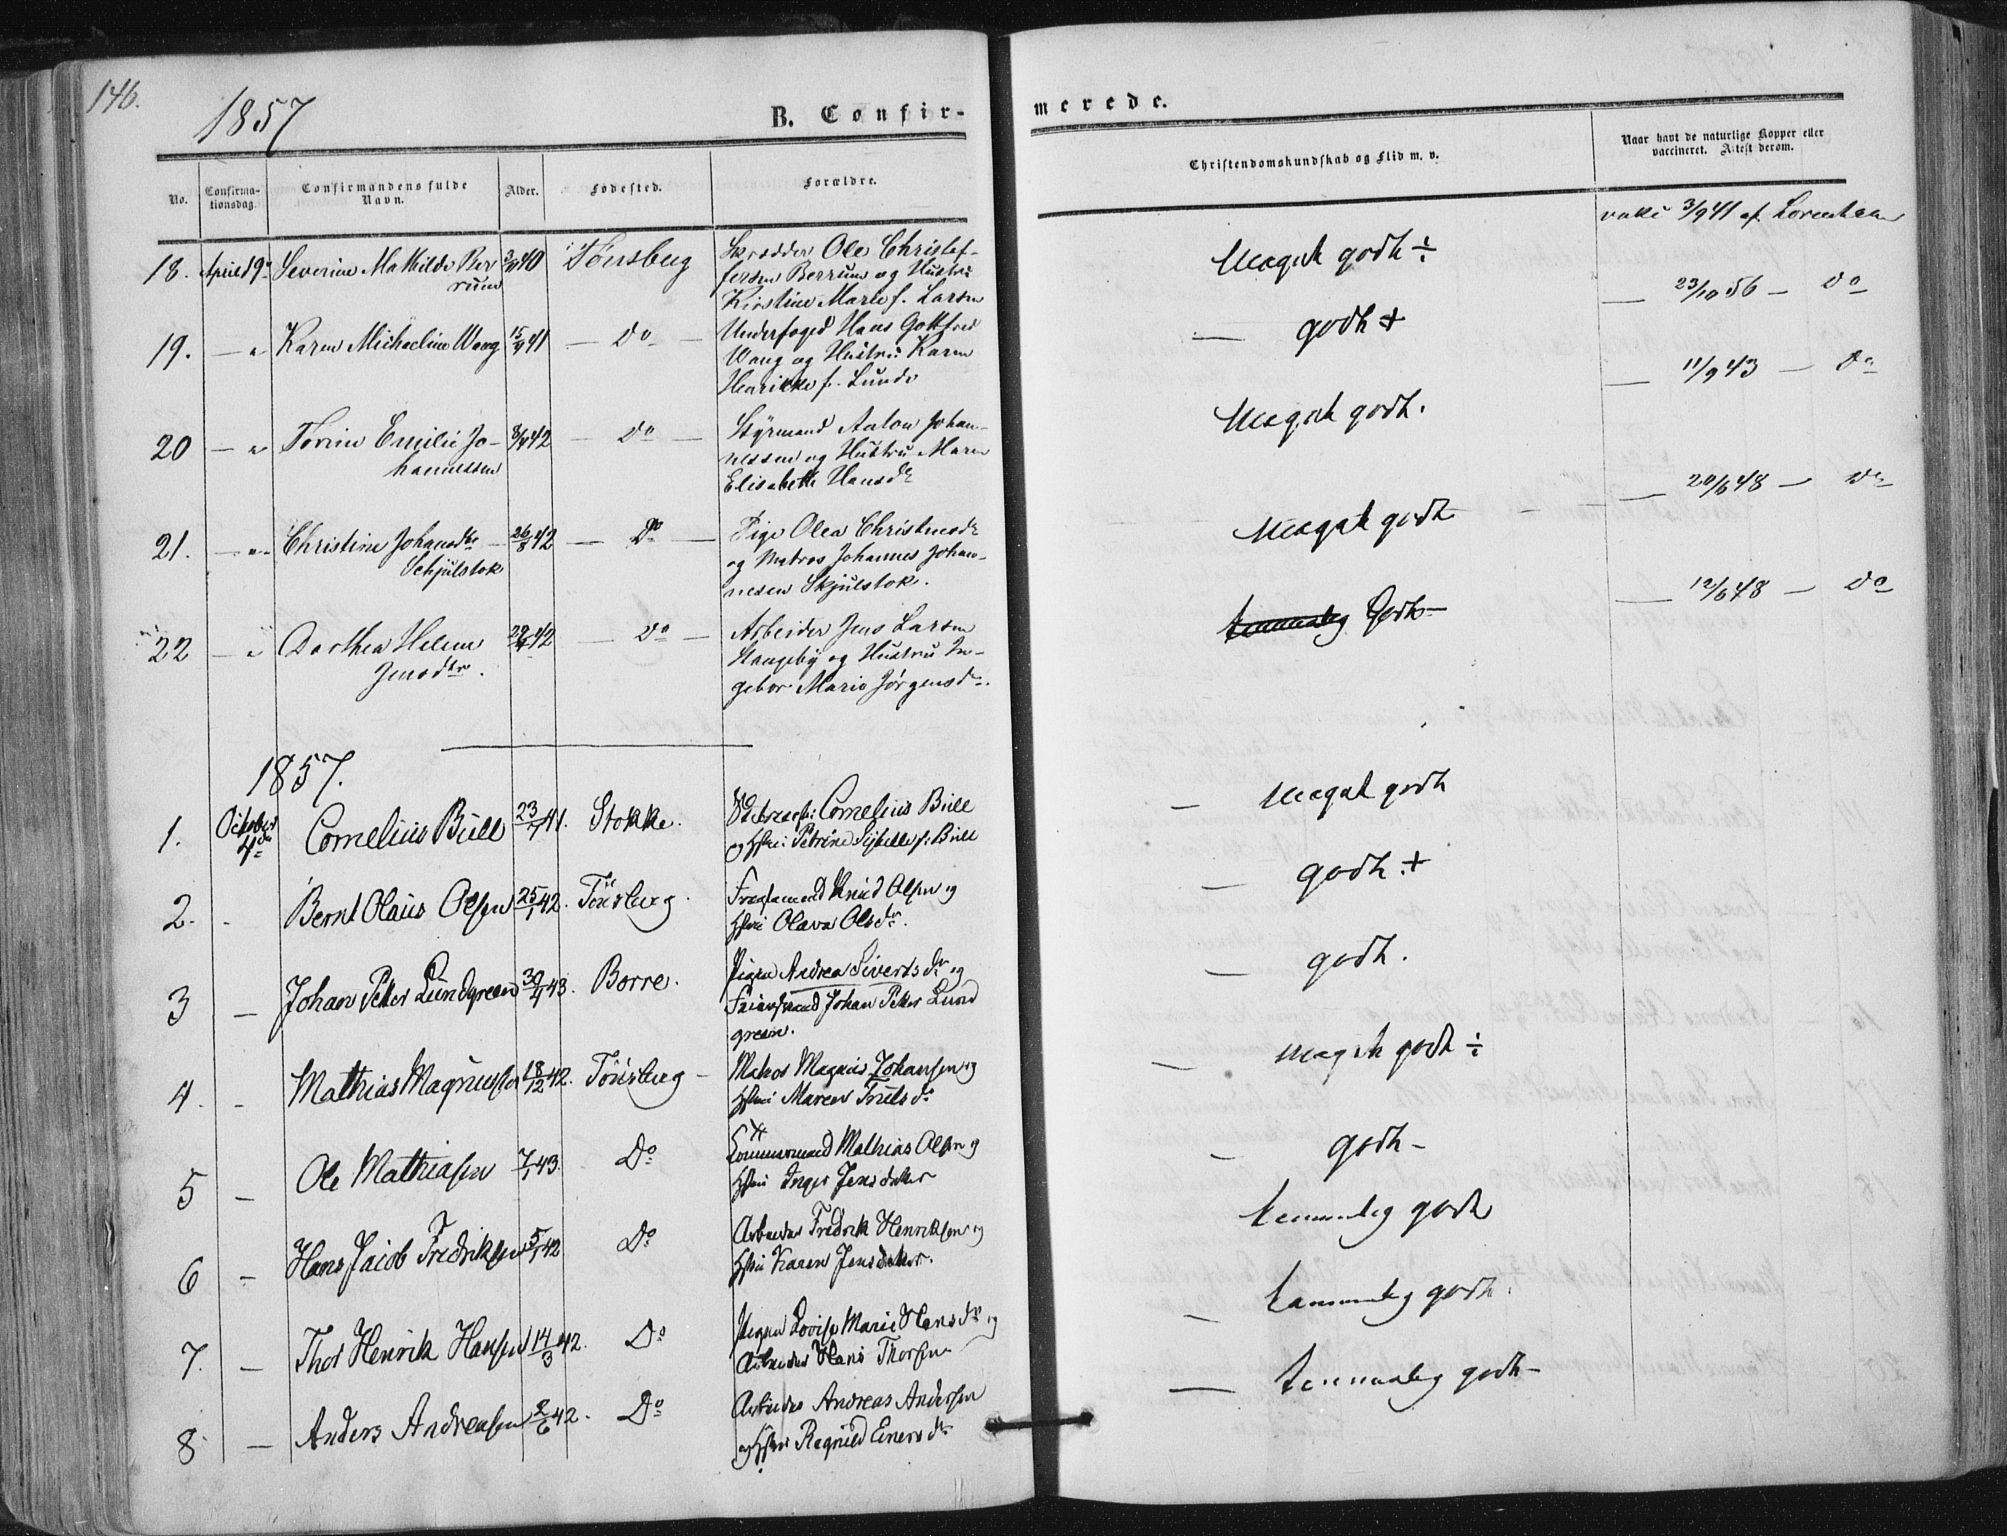 146.
1857
B. Confir-
merede.
No.
Confirma-
tionsdag.
Confirmandens fulde
Navn.
Alder.
Fødested.
Forældre.
Christendomskundskab og Flid m. v.
Naar havt de naturlige Kopper eller
vaccineret. Attest derom.
18. April 19 Severine Mathilde Ber
rum
40 Tönsberg Skrædder Ole Christof-
fersen Berrum og Hustru
Kirstine Marie f. Larsen
Meget godt ÷
3/9 41 af Lorentzen
19. — " Karen Michaeline Wang 15/9 41 — Do — Underfoged Hans Gottfred
Wang og Hustru Karen
Henrikke f. Lunde
— godt +
— 23/10 56 — Do
20 — " Torine Emilie Jo-
hannessen
42 — Do — Styrmand Anton Johan-
nessen og Hustru Maren
Elisabeth Hansdr
Meget godt.
— 11/9 43 — Do
21. — " Christine Johansdtr —
Schjulstok
26/8 42 — Do — Pige Olea Christensdr
og Matros Johannes Johan-
nesen Skjulstok.
Meget godt
— 20/6 48 — Do
22 — " Dorthea Helene
Jensdtr.
42 — Do — Arbeider Jens Larsen
Stangeby og Hustru In-
gebor Marie Jørgensdr.
temmelig Godt
— 12/6 48 — Do
1857.
1. October 4de Cornelius Bull 23/7 41. Stokke. Cornelius Bull
og Hstru: Petrine Sybille f: Bull
— Meget godt
2. - Bernt Olaus Olsen 25/1 42. Tönsberg. Knud Olsen og
Hstru Olava Olsdr.
— godt. +
3 — Johan Petter Lundgreen 30/4 43. Borre. Pigen Andrea Sivertsdr og
Johan Petter Lund
green.
— godt.
4. - Mathias Magnussen 18/2 42. Tönsberg — Matros Magnus Johansen og
Hstru Maren Trulsdr
— Meget godt ÷
5 — Ole Mathiasen 7/1 43. Do Mathias Olsen og
Hstru Inger Jensdatter
— godt —
6 — Hans Jacob Fredriksen 5/1 42 Do Arbeider Fredrik Henriksen og
Hstru Karen Jensdatter.
temmelig godt
7. — Thor Henrik Hansen 14/3 42. Do Pigen Lovise Marie Hansdr og
Arbeider Hans Thorsen
— temmelig godt.
8 — Anders Andreasen 2/6 42. Do Arbeider Andreas Andersen
og Hstru Ragnild Einersdr
— temmelig godt —